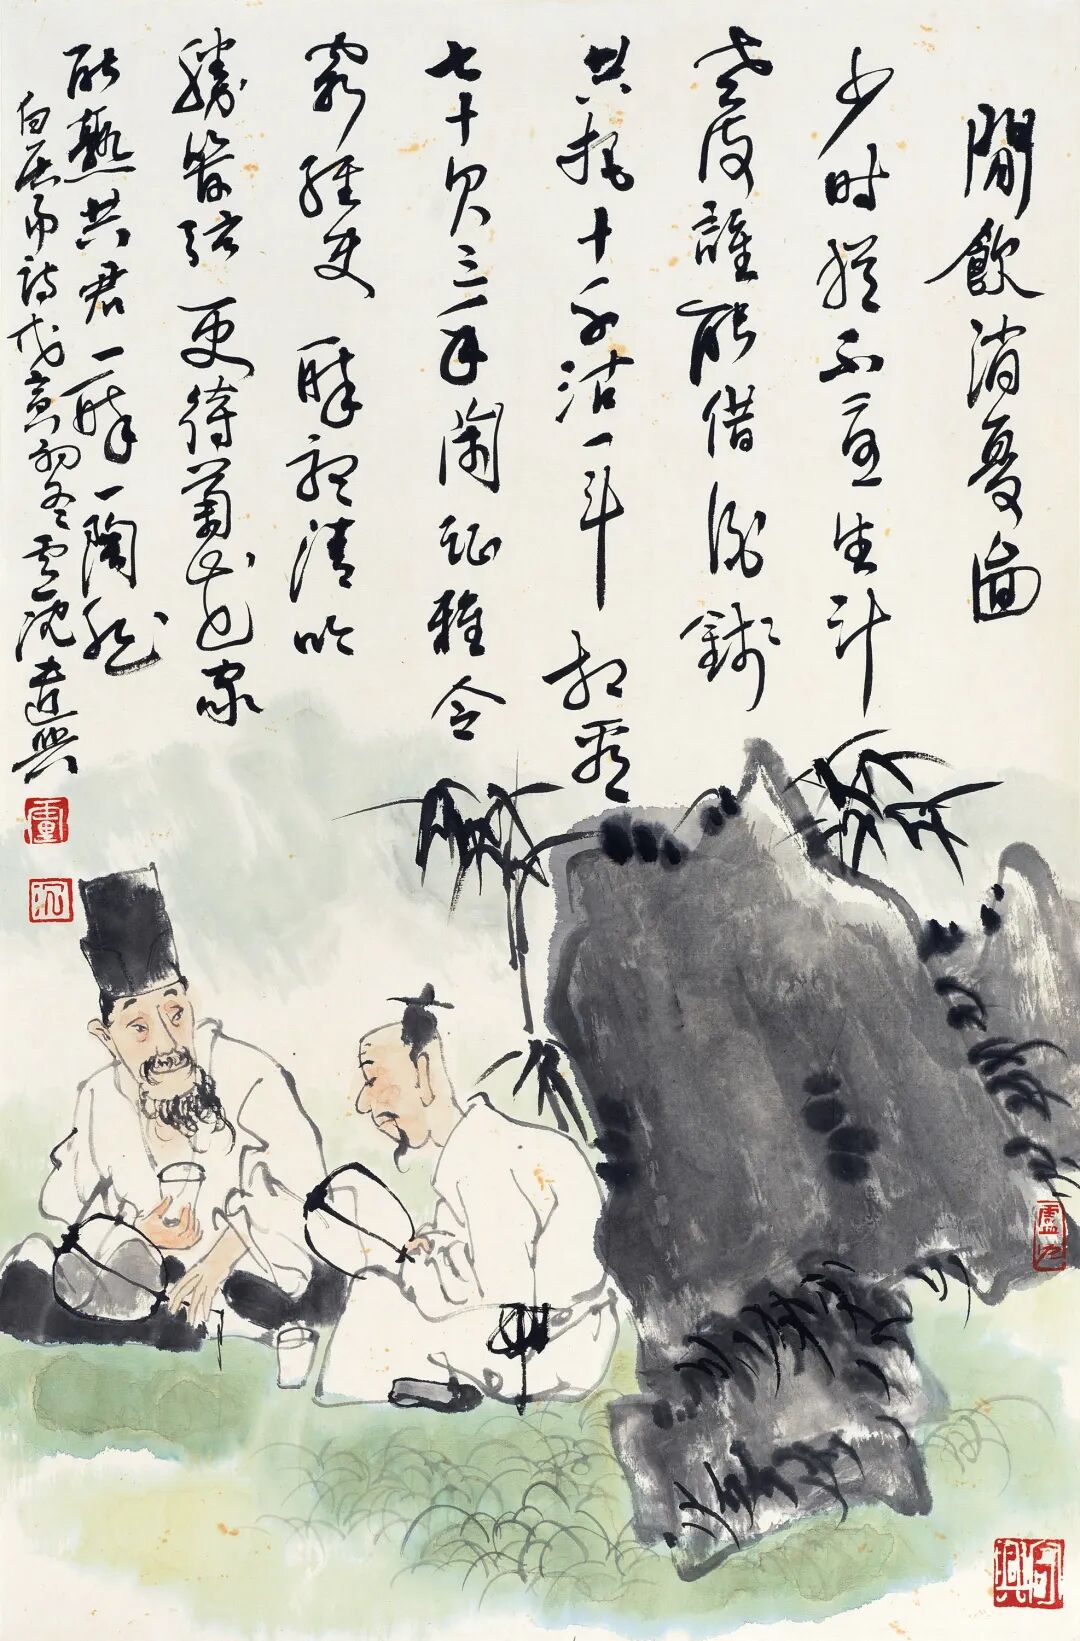 閒飲消憂圖
少时猶不憂生计
老後誰能惜酒錢
共把十千沽一斗 相看
七十欠三年 閑征雅令
窮經史 醉聽清吟
勝管弦 更待菊黄家
酝熟共君一醉一陶然
白居易诗 戊寅初冬盧沉遣興
盧
沉